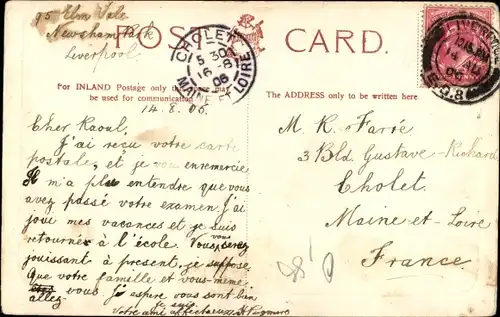 95 Elm Vale
Newsham Park
Liverpool.
POST CARD.
CHOLET
5 30
16 -8
06
MAINE-ET-LOIRE
LIVERPOOL
14 AU
06
For INLAND Postage only this
be used for communication
The ADDRESS only to be written here.
14.8.06.
Cher Raoul,
J'ai reçu votre carte
postale, et je vous enremercie
Il m'a plu entendre que vous
avez passé votre examen. J'ai
joui mes vacances et je suis
retourné à l'école. Vous vous serez
jouissant à present, je suppose
Que votre famille et vous-même
vous J'aspere vous sont bien
allez
je suis
Votre ami affectueux
M. R. Farré
3 Bld. Gustave-Richard
Cholet.
Maine-et-Loire
France.